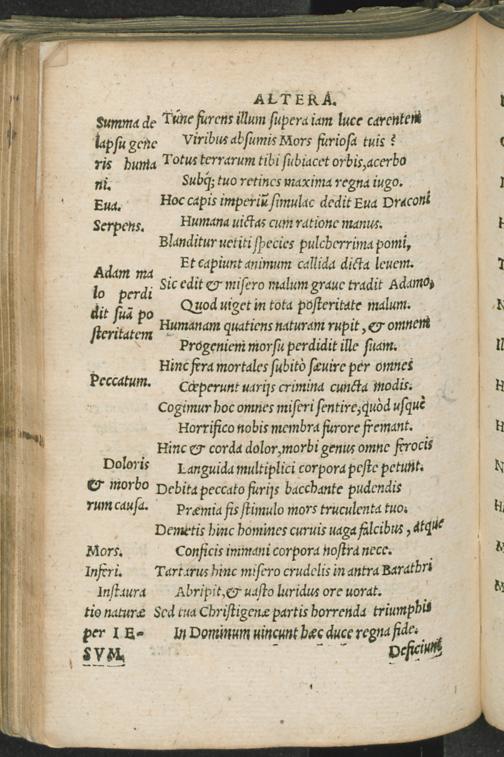 ALTERA.
Summa de
lapsu gene
ris huma
ni.
Eua.
Serpens.
Adam ma
lo perdi
dit suā po
steritatem
Peccatum.
Doloris
& morbo
rum causa.
Mors.
Inferi.
Instaura
tio naturæ
per IE=
SVM.
Túne furens illum supera iam luce carentem
Viribus absumis Mors furiosa tuis?
Totus terrarum tibi subiacet orbis, acerbo
Subq; tuo retines maxima regna iugo.
Hoc capis imperiū simulac dedit Eua Draconi
Humana uictas cum ratione manus.
Blanditur uetiti species pulcherrima pomi,
Et capiunt animum callida dicta leuem.
Sic edit & misero malum graue tradit Adamo,
Quod uiget in tota posteritate malum.
Humanam quatiens naturam rupit, & omnem
Progeniem morsu perdidit ille suam.
Hinc fera mortales subitò sæuire per omnes
Cœperunt varijs crimina cuncta modis.
Cogimur hoc omnes miseri sentire, quòd usque
Horrifico nobis membra furore fremant.
Hinc & corda dolor, morbi genus omne ferocis
Languida multiplici corpora peste petunt.
Debita peccato furijs bacchante pudendis
Præmia fis stimulo mors truculenta tuo.
Demetis hinc homines curuis uaga falcibus, atque
Conficis inmani corpora nostra nece.
Tartarus hinc misero crudelis in antra Barathri
Abripit, & uasto luridus ore uorat.
Sed tua Christigenæ partis horrenda triumphis
In Dominum uincunt hæc duce regna fide.
Deficiunt